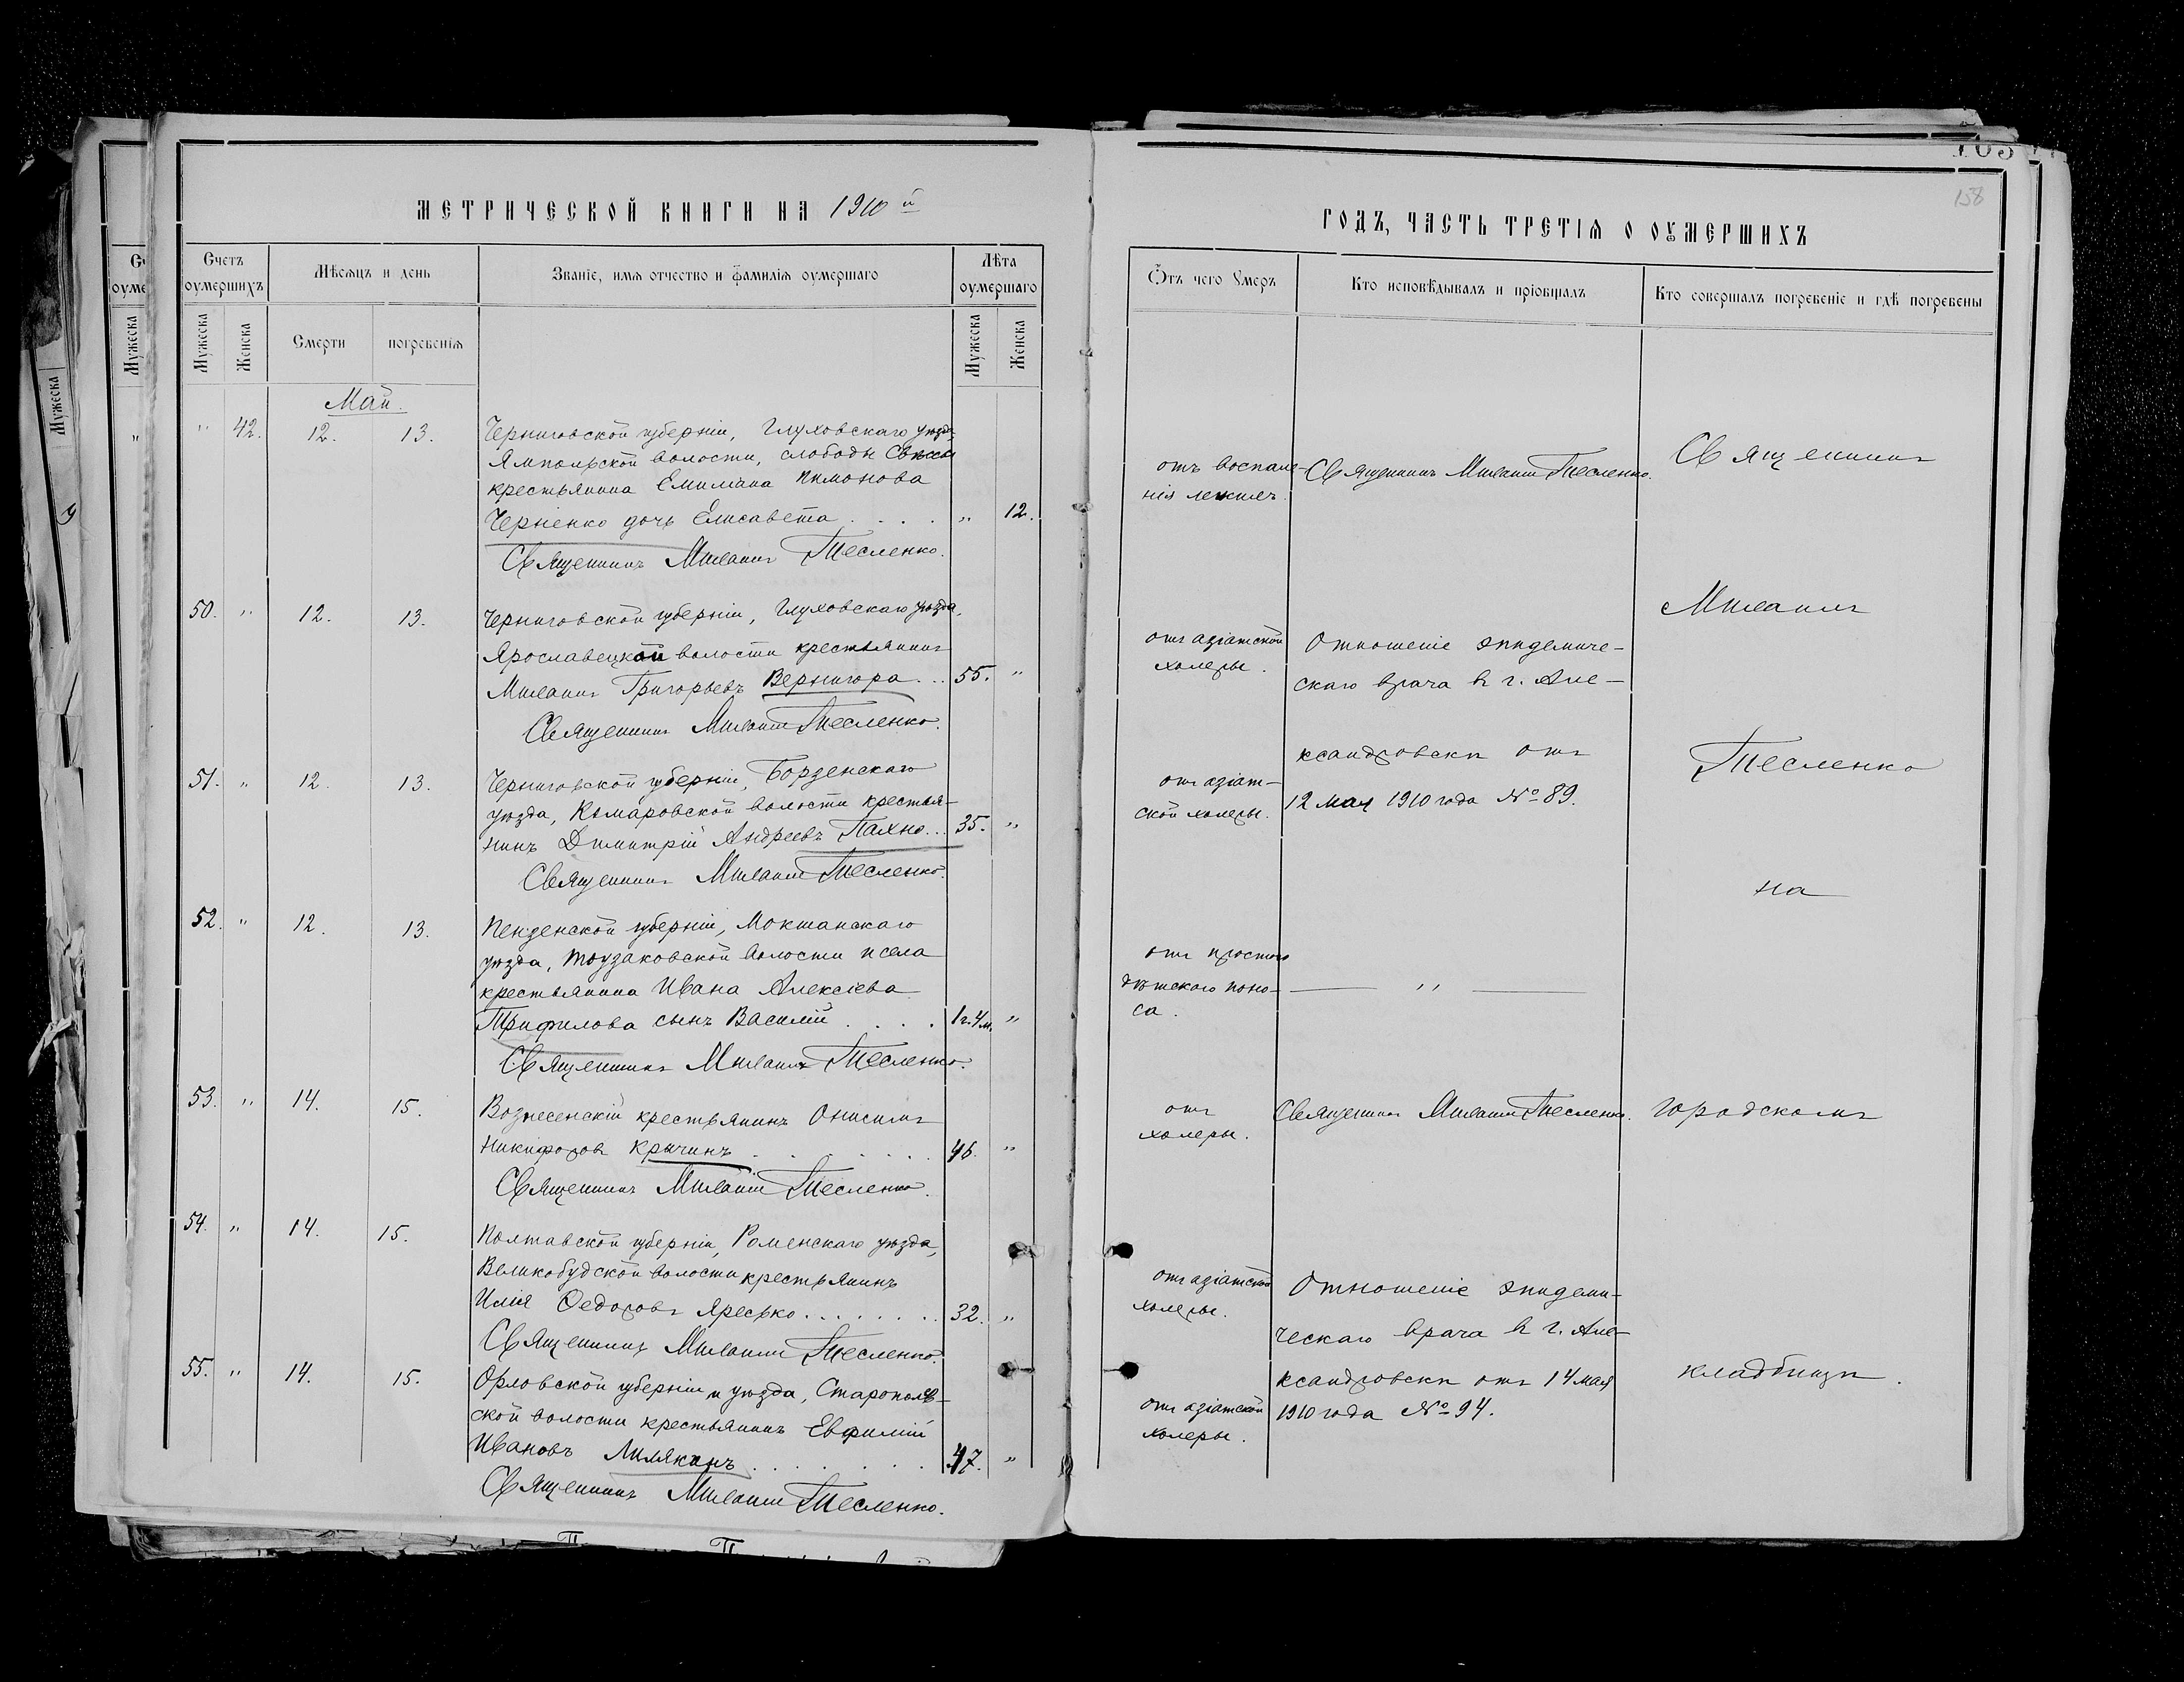 МЕТРИЧЕСКОЙ КНИГИ НА 1910й
Счетъ оумершихъ
Мѣсяцъ и день
Званіе, имя отчество и фамилія оумершаго
Лѣта оумершаго
Мужеска
Женска
Смерти
погребенія
Мужеска
Женска
Май.
" 42. 12. 13. Черниговской губерніи, Глуховскаго уѣзда
Ямпольской волости, слободы
крестьянина Емиліана Пимонова
Черненко дочь Елисавета . . . . " 12.
Священникъ Михаилъ Тесленко.
50. " 12. 13. Черниговской губерніи, Глуховскаго уѣзда,
Ярославецкой волости крестьянинъ
Михаилъ Григорьевъ Вернигора . . . 55. "
Священникъ Михаилъ Тесленко.
51. " 12. 13. Черниговской губерніи, Борзенскаго
уѣзда, Комаровской волости крестья-
нинъ Димитрій Андреевъ Пахно . . 35. "
Священникъ Михаилъ Тесленко.
52. " 12. 13. Пензенской губерніи, Мокшанскаго
уѣзда, волости и села
крестьянина Ивана Алексіева
Трифилова сынъ Василій . . . . 1г.4м. "
Священникъ Михаилъ Тесленко.
53. " 14. 15. Вознесенскій крестьянинъ Онисимъ
Никифоровъ Кричинъ . . . . . . . 46. "
Священникъ Михаилъ Тесленко.
54. " 14. 15. Полтавской губерніи, Роменскаго уѣзда,
Великобудской волости крестьянинъ
Илія Ѳедоровъ Яресько . . . . . . . 32. "
Священникъ Михаилъ Тесленко.
55. " 14. 15. Орловской губерніи и уѣзда,
ской волости крестьянинъ Евфимій
Ивановъ Милякинъ . . . . . . . 47. "
Священникъ Михаилъ Тесленко.
158
ГОДЪ, ЧАСТЬ ТРЕТІЯ О ОУМЕРШИХЪ
Отъ чего умеръ
Кто исповѣдывалъ и пріобщалъ
Кто совершалъ погребеніе и гдѣ погребены
отъ воспале-
нія легкихъ.
Священникъ Михаилъ Тесленко.
Священникъ
Михаилъ
отъ азіатской
холеры.
Отношеніе эпидемиче-
скаго врача въ г. Але-
ксандровскѣ отъ
12 мая 1910 года № 89.
Тесленко
отъ азіат-
ской холеры.
на
отъ простого
дѣтскаго поно-
са.
"
отъ
холеры.
Священникъ Михаилъ Тесленко.
городскомъ
отъ азіатской
холеры.
Отношеніе эпидеми-
ческаго врача въ г. Але-
ксандровскѣ отъ 14 мая
1910 года № 94.
кладбищѣ.
отъ азіатской
холеры.